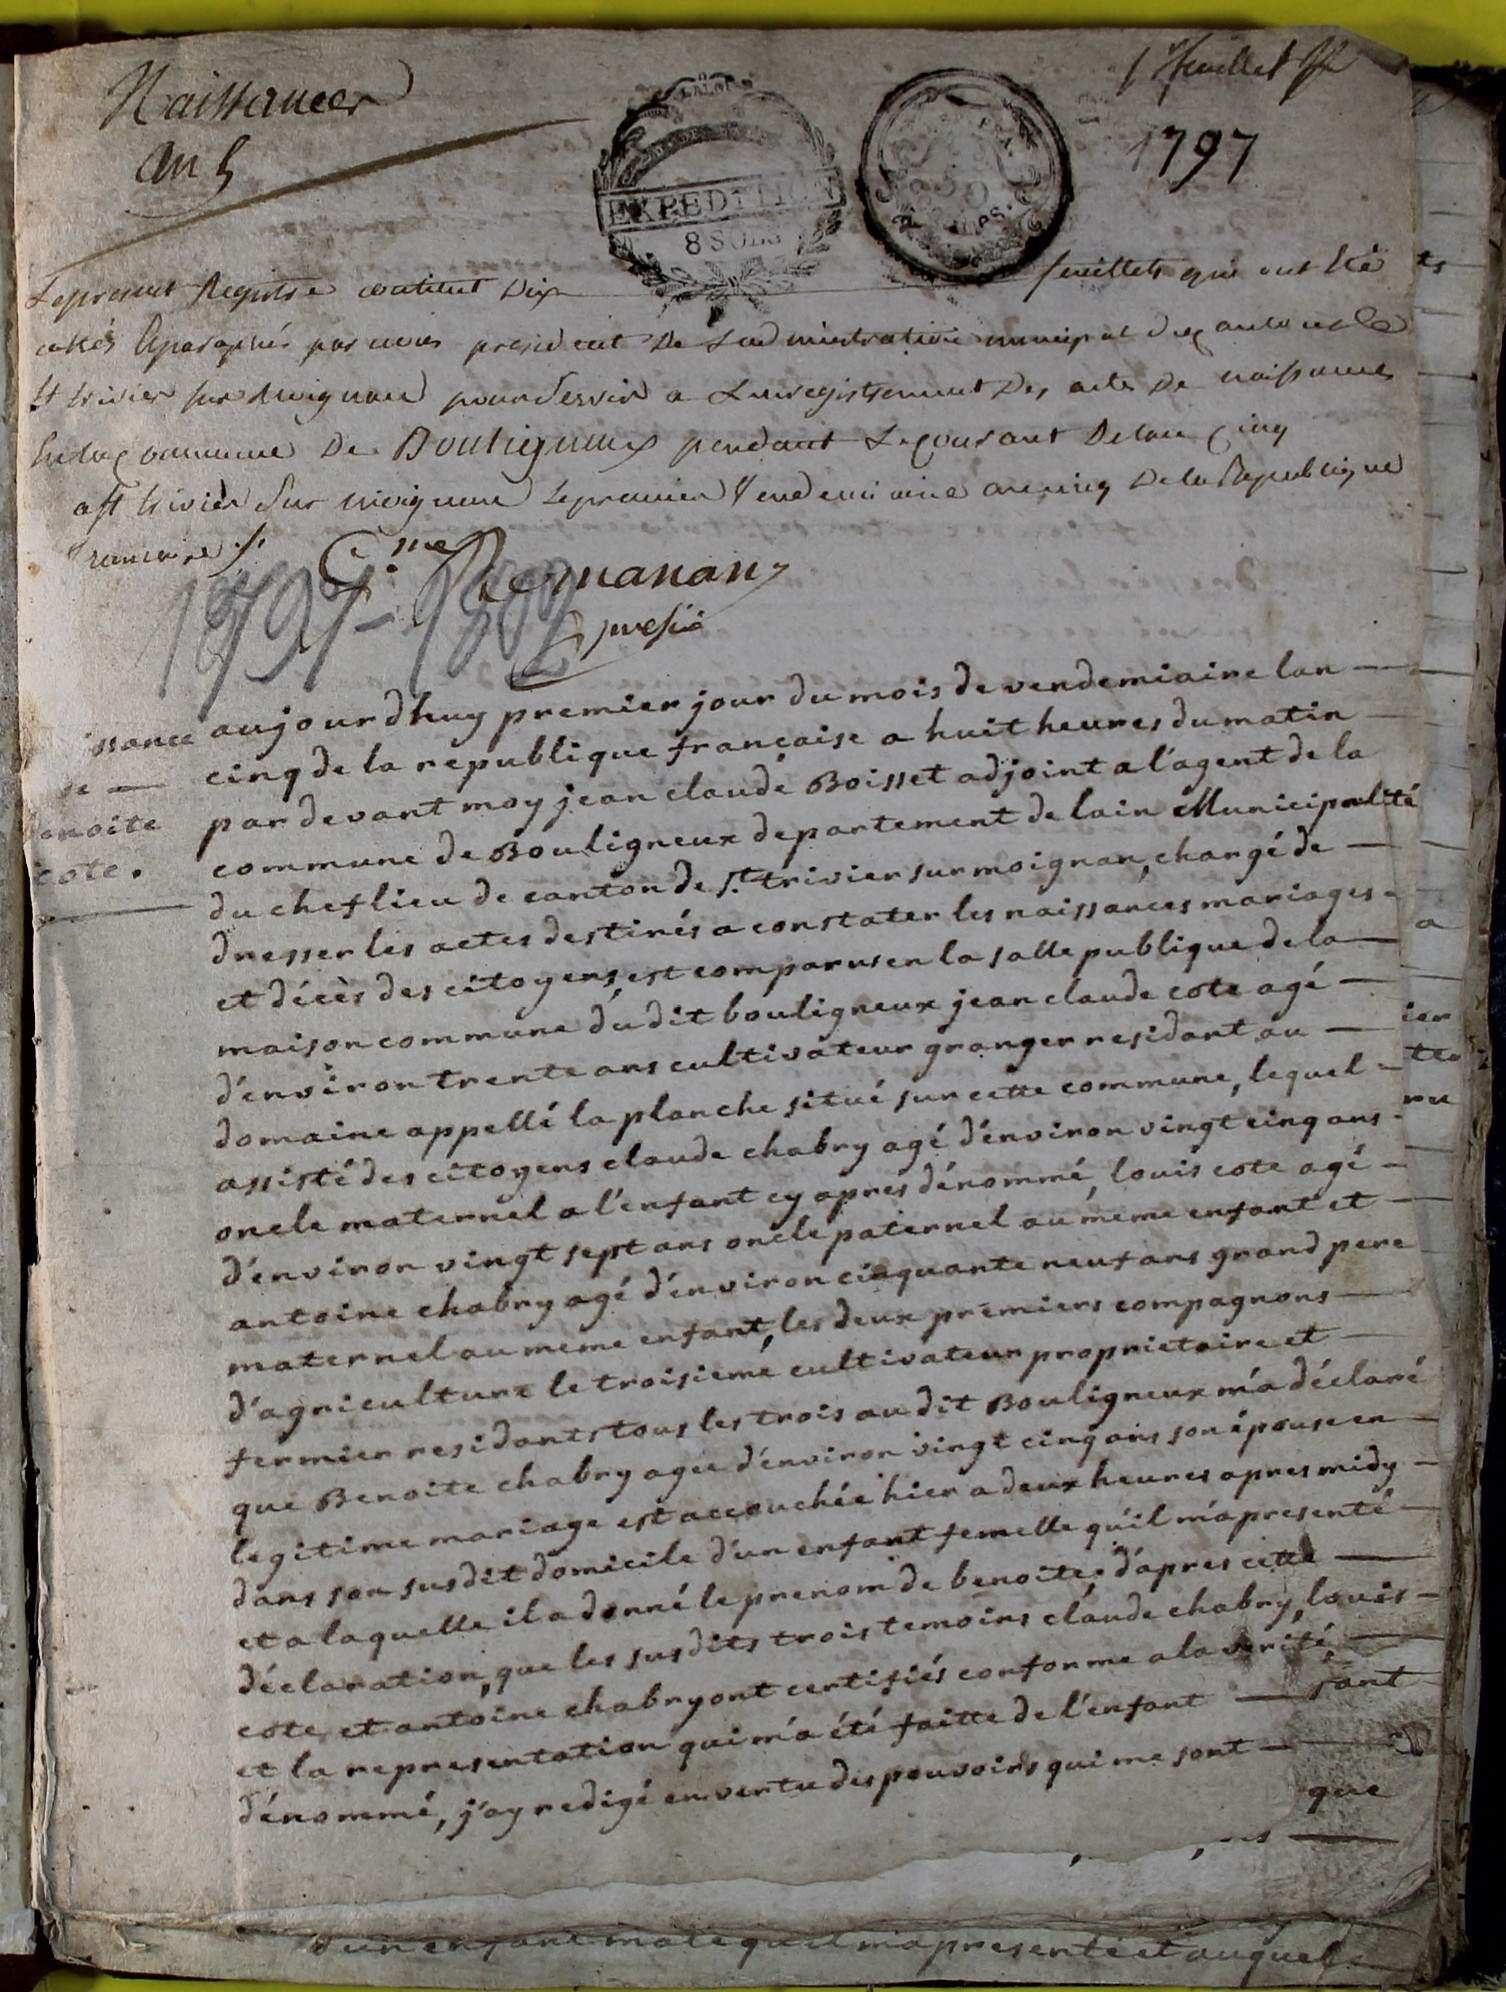 Naissances
an 5
1er feuillet
1797
EXPEDITION
8 SOLS
Le present Registre contient Dix feuillets qui ont été
cotés & paraphés par nous president De Ladministration municipal du canton de
St trivier sur moignand pour servir a Lenregistrement Des actes De naissances
De la Commune De Bouligneux pendant Le Courant De lan Cinq
a St trivier Sur moignand Le premier Vendemiaire an cinq De la Republique
francaise
1797-1802
presid
issance
de
benoite
cote.
aujourdhuy premier jour du mois de vendemiaire lan
cinq de la république française a huit heures du matin
par devant moy jean claude Boisset adjoint a l'agent de la
commune de Bouligneux departement de lain Municipalité
du cheflieu de canton de St. trivier sur moignan, chargé de
dresser les actes destinés a constater les naissances mariages
et décès des citoyens, est comparu en la salle publique de la
maison commune dudit bouligneux jean claude cote agé
d'environ trente ans cultivateur granger residant au
domaine appellé la planche situé sur cette commune, lequel
assisté des citoyens claude chabry agé d'environ vingt cinq ans
oncle maternel a l'enfant cy après dénommé, louis cote agé
d'environ vingt sept ans oncle paternel au même enfant et
antoine chabry agé d'environ cinquante neuf ans grand pere
maternel au meme enfant, les deux premiers compagnons
d'agriculture le troisieme cultivateur proprietaire et
fermier residants tous les trois audit Bouligneux m'a déclaré
que Benoite chabry agee d'environ vingt cinq ans son épouse en
legitime mariage est accouchée hier a deux heures apres midy
dans son susdit domicile d'un enfant femelle qu'il m'a presenté
et a laquelle il a donné le prenom de benoite; d'apres cette
déclaration, que les susdits trois temoins claude chabry, louis
cote, et antoine chabry ont certifiés conforme a la verité,
et la representation qui m'a été faitte de l'enfant sant
dénommé, j'ay redigé en vertu des pouvoirs qui me sont
que
d'un enfant male qu'il m'a presenté et auquel